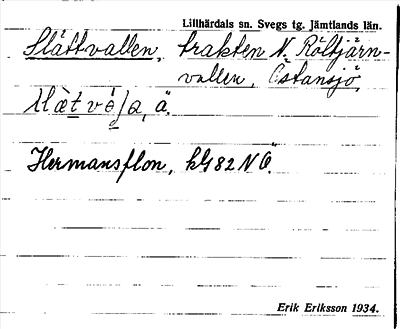 Lillhärdals sn. Svegs tg. Jämtlands län.
Slåttvallen, trakten N. Röltjärn-
vallen, Östansjö,
ä.
Hermansflon, kG82NÖ.
Erik Eriksson 1934.